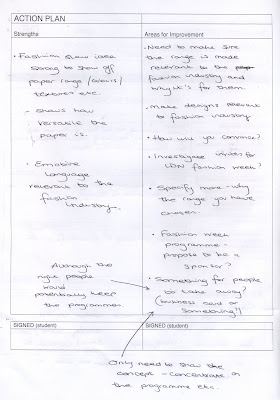 ACTION PLAN
Strengths
• Fashion show idea
strong to show off
paper range / colours /
textures etc.
- shows how
versatile the
paper is.
• Emotive
language
relevant to the
fashion
industry.
Although the
right people
would
potentially keep
the programmes.
Areas for Improvement
• Need to make sure
the range is made
relevant to the
fashion industry and
why it's for them.
• Make designs relevant
to fashion industry
• How will you convince?
• Investigate invites for
LDN fashion week?
• Specify more - why
the range you have
chosen.
• Fashion week
programme -
propose to be a
sponsor?
• Something for people
to take away?
(business card or
something!)
SIGNED (student)
SIGNED (student)
Only need to show the
concept - concentrate on
the programme etc.